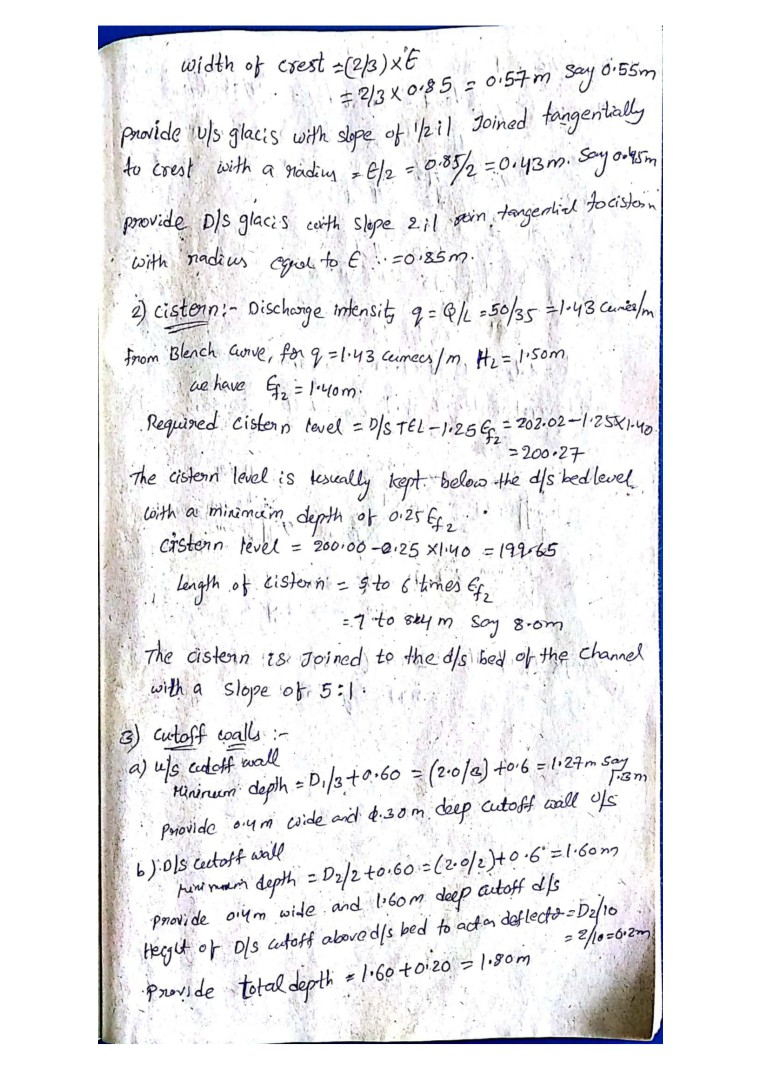 width of crest = (2/3) × E
= 2/3 × 0.85 = 0.57m say 0.55m
provide U/s glacis with slope of 1/2:1 Joined tangentially
to crest with a radius = E/2 = 0.85/2 = 0.43m. Say 0.45m
provide D/s glacis with slope 2:1 join tangential to cistern
with radius equal to E ∴ = 0.85m.
2) cistern:- Discharge intensity q = Q/L = 50/35 = 1.43 cumecs/m
from Blench curve, for q = 1.43 cumecs/m, HL = 1.50m
we have Ef2 = 1.40m.
Required cistern level = D/s TEL - 1.25 Ef2 = 202.02 - 1.25×1.40
= 200.27
The cistern level is usually kept below the d/s bed level
with a minimum depth of 0.25 Ef2
cistern level = 200.00 - 0.25 × 1.40 = 199.65
Length of cistern = 5 to 6 times Ef2
= 7 to 8.4 m say 8.0m
The cistern is Joined to the d/s bed of the channel
with a slope of 5:1.
3) cutoff walls :-
a) u/s cutoff wall
Minimum depth = D1/3 + 0.60 = (2.0/3) + 0.6 = 1.27m say 1.3m
Provide 0.4m wide and 1.30m deep cutoff wall U/s
b) D/s cutoff wall
minimum depth = D2/2 + 0.60 = (2.0/2) + 0.6 = 1.60m
provide 0.4m wide and 1.60m deep cutoff d/s
Height of D/s cutoff above d/s bed to act as deflector = D2/10
= 2/10 = 0.2m
Provide total depth = 1.60 + 0.20 = 1.80m